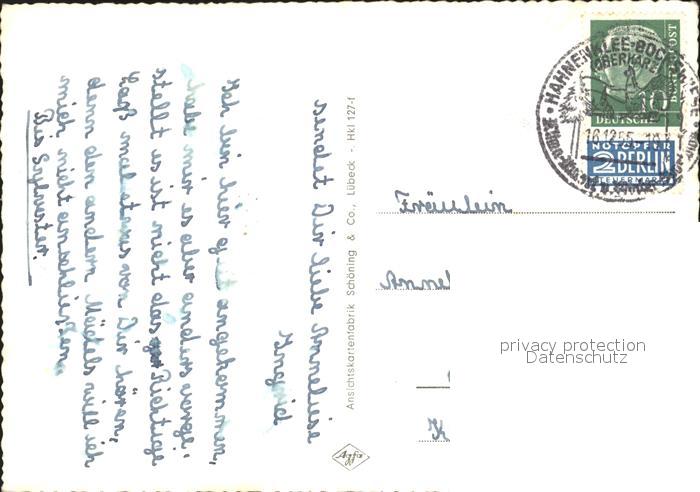 Ich bin hier gut angekommen,
habe mir es aber anders vorge-
stellt es ist nicht das Richtige
Laß mal etwas von Dir hören,
denn den andern Mädels will ich
mich nicht anschließen.
Bis Sylvester.
sendet Dir liebe Anneliese
Ingrid
Ansichtskartenfabrik Schöning & Co., Lübeck - Hkl 127-f
Agfa
HAHNENKLEE-BOCKSWIESE
OBERHARZ
16.12.55
DEUTSCHE BUNDESPOST
10
NOTOPFER
2 BERLIN
STEUERMARKE
Fräulein
Anne
K
privacy protection
Datenschutz